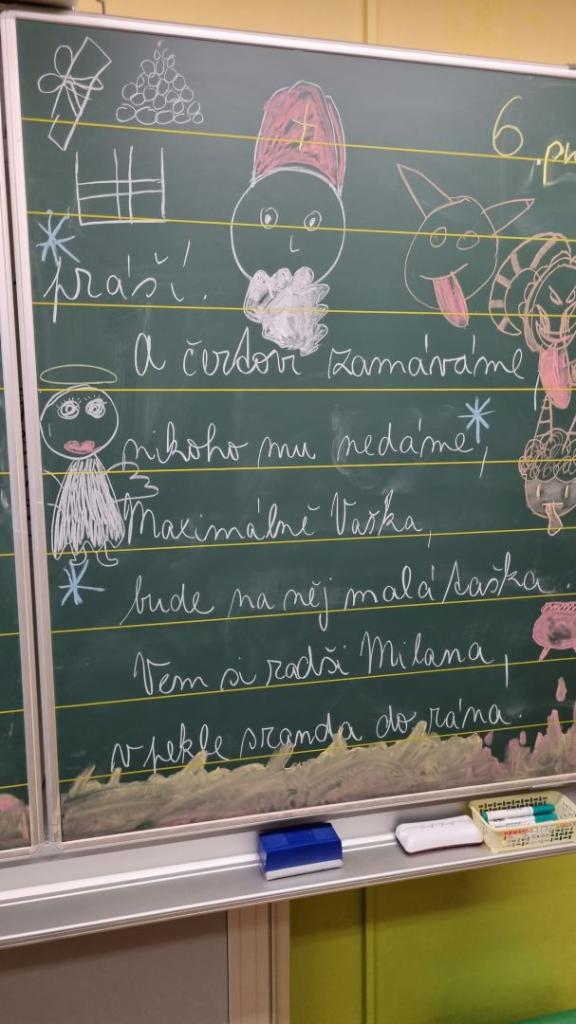 6. pr
práší.
A čertovi zamáváme,
nikoho mu nedáme,
Maximálně Vaška,
bude na něj malá taška.
Vem si radši Milana,
v pekle sranda do rána.